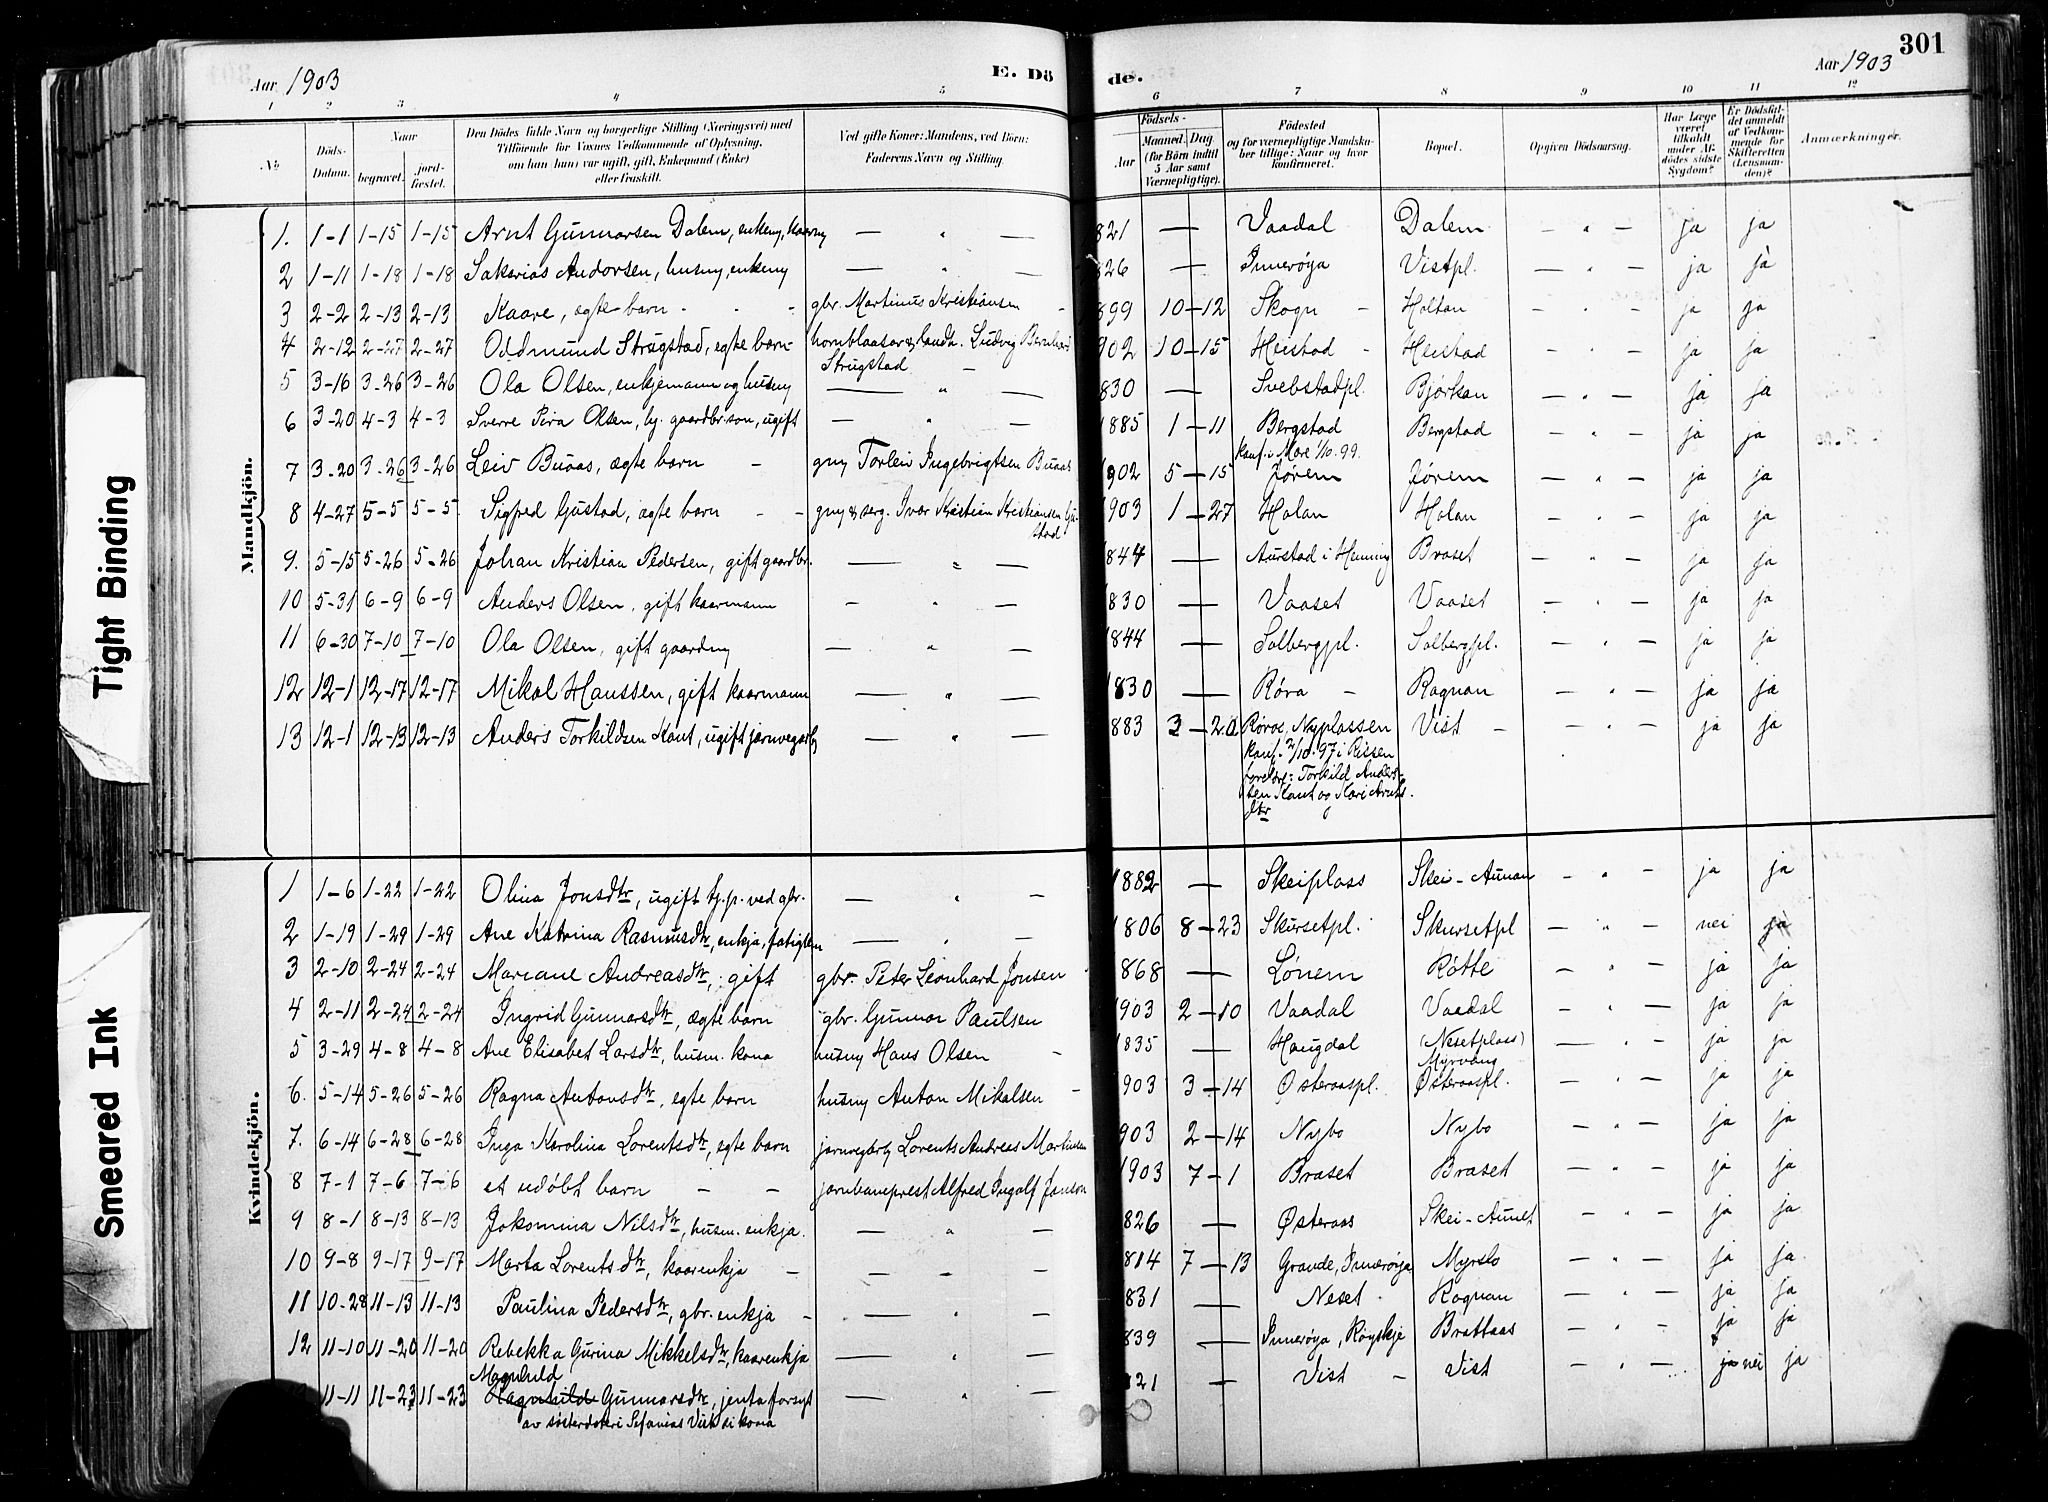 301
Aar 1903
E. Dö
de.
Aar 1903
1 2 3 4 5 6 7 8 9 10 11 12
No
Döds-Datum.
Naar
begravet.
jord-fæstet.
Den Dödes fulde Navn og borgerlige Stilling (Næringsvei) med
Tilföiende for Voxnes Vedkommende af Oplysning,
om han (hun) var ugift, gift, Enkemand (Enke)
eller fraskilt.
Ved gifte Koner: Mandens, ved Börn:
Faderens Navn og Stilling.
Födsels-
Aar
Maaned. Dag
(for Börn indtil
5 Aar samt
Værnepligtige).
Födested
og for værnepligtige Mandska-
ber tillige: Naar og hvor
konfirmeret.
Bopæl.
Opgiven Dödsaarsag.
Har Læge
været
tilkaldt
under Af-
dödes sidste
Sygdom?
Er Dödsfal-
det anmeldt
af Vedkom-
mende for
Skifteretten
(Lensman-
den)?
Anmærkninger.
Mandkjön.
1. 1-1 1-15 1-15 Arnt Gunnarsen Dalem, enkem, kaarm — " — 821 — Vaadal Dalem — " — ja ja
2 1-11 1-18 1-18 Sakarias Andorsen, husm, enkem — " — 826 — Inderøya Vistpl. — " — ja ja
3 2-2 2-13 2-13 Kaare, ægte barn - - gbr. Martinus Kristiansen - 899 10-12 Skogn - Holtan - " - ja ja
4 2-12 2-27 2-27 Oddmund Strugstad, egte barn- hornblaasar & landh. Ludvig Bernhard 902 10-15 Heistad - Heistad - " - ja ja
Strugstad -
5 3-16 3-26 3-26 Ola Olsen, enkjemann og husm — " — 830 — Svebstadpl. Bjørkan — " — ja ja
6 3-20 4-3 4-3 Sverre Pera Olsen, tj. gaardbr. son, ugift — " — 1885 1-11 Bergstad Bergstad — " — ja ja
konf. i Møre 1/10.99.
7 3-20 3-26 3-26 Leiv Buaas, ægte barn - gm Torleiv Ingebrigtsen Buaas 1902 5-15 Jørem Jørem — " — ja ja
8 4-27 5-5 5-5 Sigfred Gustad, ægte barn - - gm & serg. Ivar Kristian Kristiansen Gu- 1903 1-27 Holan Holan — " — ja ja
stad
9. 5-15 5-26 5-26 Johan Kristian Pedersen, gift gaardbr. — " — 1844 — Aurstad i Henning Braset — " — ja ja
10 5-31 6-9 6-9 Anders Olsen, gift kaarmann — " — 830 — Vaaset Vaaset — " — ja ja
11 6-30 7-10 7-10 Ola Olsen, gift gaardm — " — 1844 — Solbergpl. Solbergpl. — " — ja ja
12 12-1 12-17 12-17 Mikal Hanssen, gift kaarmann — " — 1830 — Røra - Ragnan — " — ja ja
13 12-1 12-13 12-13 Anders Torkildsen Kant, ugift jarnvegarb — " — 883 3-20 Røros, Nyplassen Vist - — " — ja ja
konf. 3/10.97 i Rissen
foreldre: Torkild Anders-
sen Kant og Kari Arnts-
dtr
Kvindekjön.
1 1-6 1-22 1-22 Olina Jonsdtr, ugift tj.p. ved gbr. — " — 1882 — Skeiplass Skei-Aunan — " — ja ja
2 1-19 1-29 1-29 Ane Katrina Rasmusdtr, enkja, fatiglem — " — 1806 8-23 Skursetpl. Skursetpl — " — nei ja
3 2-10 2-24 2-24 Mariane Andreasdtr, gift gbr. Peter Leonhard Jonsen 868 — Lønem Røtte — " — ja ja
4 2-11 2-24 2-24 Ingrid Gunnarsdtr, ægte barn gbr. Gunnar Paulsen 1903 2-10 Vaadal Vaadal — " — ja ja
5 3-29 4-8 4-8 Ane Elisabet Larsdtr, husm. kona husm Hans Olsen - 1835 — Haugdal (Nesetplass) — " — ja ja
Myrvang
6. 5-14 5-26 5-26 Ragna Antonsdtr, egte barn husm Anton Mikalsen - 903 3-14 Østeraaspl. Østeraaspl. — " — ja ja
7. 6-14 6-28 6-28 Inga Karolina Lorentsdtr, egte barn jarnvegarb Lorents Andreas Martinsen 903 2-14 Nybo Nybo — " — ja ja
8 7-1 7-6 7-6 et udøbt barn - - jarnbaneprest Alfred Ingolf Janson 1903 7-1 Braset Braset — " — ja ja
9 8-1 8-13 8-13 Jakomina Nilsdtr, husm. enkja. — " — 826 — Østeraas Skei-Aunet — " — ja ja
10 9-8 9-17 9-17 Marta Lorentsdtr, kaarenkja - — " — 814 7-13 Grande, Inderøya Myrslo — " — ja ja.
11 10-28 11-13 11-13 Paulina Pedersdtr, gbr. enkja - — " — 831 — Neset - Ragnan — " — ja ja
12 11-10 11-20 11-20 Rebekka Gurina Mikkelsdtr, kaarenkja — " — 839 — Inderøya, Røyskje Brattaas — " — ja ja
Magnhild
11-11 11-23 11-23 Ragnhild Gunnarsdtr, jenta forsyt — " — 821 — Vist - Vist — " — ja nei ja
av søsterdotter i Sefanias Vist si kona
Tight Binding
Smeared Ink